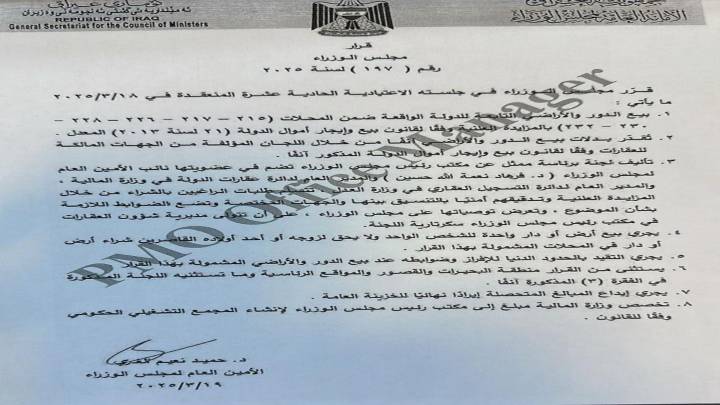 REPUBLIC OF IRAQ
General Secretariat for the Council of Ministers
الأمانة العامة لمجلس الوزراء
قرار
مجلس الوزراء
رقم ( ١٩٧ ) لسنة ٢٠٢٥
قـرّر مجلـس الـوزراء فـي جلسـته الاعتياديـة الحاديـة عشـرة المنعقـدة فـي ٢٠٢٥/٣/١٨
ما يأتي :
١. بيع الدور والأراضي التابعة للدولة الواقعة ضمن المحلات (٢١٥ – ٢١٧ – ٢٢٦ – ٢٢٨ –
٢٣٠ – ٢٣٢) بالمزايدة العلنية وفقًا لقانون بيع وإيجار أموال الدولة (٢١ لسنة ٢٠١٣) المعدل .
٢. تُقدّر بدلات بيع الدور والأراضي آنفًا من خلال اللجان المؤلفة من الجهات المالكة
للعقارات وفقًا لقانون بيع وإيجار أموال الدولة المذكور آنفًا .
٣. تأليف لجنة برئاسة ممثل عن مكتب رئيس مجلس الوزراء تضم في عضويتها نائب الأمين العام
لمجلس الوزراء ( د. فرهاد نعمة الله حسين ) والمدير العام لدائرة عقارات الدولة في وزارة المالية ،
والمدير العام لدائرة التسجيل العقاري في وزارة العدل ، تتسلم طلبات الراغبين بالشراء من خلال
المزايدة العلنية وتدقيقهم أمنيًا بالتنسيق بينها والجهات المختصة وتضع الضوابط اللازمة
بشأن الموضوع ، وتعرض توصياتها على مجلس الوزراء ، على أن تتولى مديرية شؤون العقارات
في مكتب رئيس مجلس الوزراء سكرتارية اللجنة.
٤. يجري بيع أرض أو دار واحدة للشخص الواحد ولا يحق لزوجه أو أحد أولاده القاصرين شراء أرض
أو دار في المحلات المشمولة بهذا القرار
٥. يجري التقيد بالحدود الدنيا للإفراز وضوابطه عند بيع الدور والأراضي المشمولة بهذا القرار
٦. يستثنى من القرار منطقة البحيرات والقصور والمواقع الرئاسية وما تستثنيه اللجنة المذكورة
في الفقرة (٣) المذكورة آنفًا .
٧. يجري إيداع المبالغ المتحصلة إيرادًا نهائيًا للخزينة العامة .
٨. تخصص وزارة المالية مبلغ إلى مكتب رئيس مجلس الوزراء لإنشاء المجمع التشغيلي الحكومي
وفقًا للقانون .
د. حميد نعيم الغزي
الأمين العام لمجلس الوزراء
٢٠٢٥/٣/١٩
PMO Office Manager